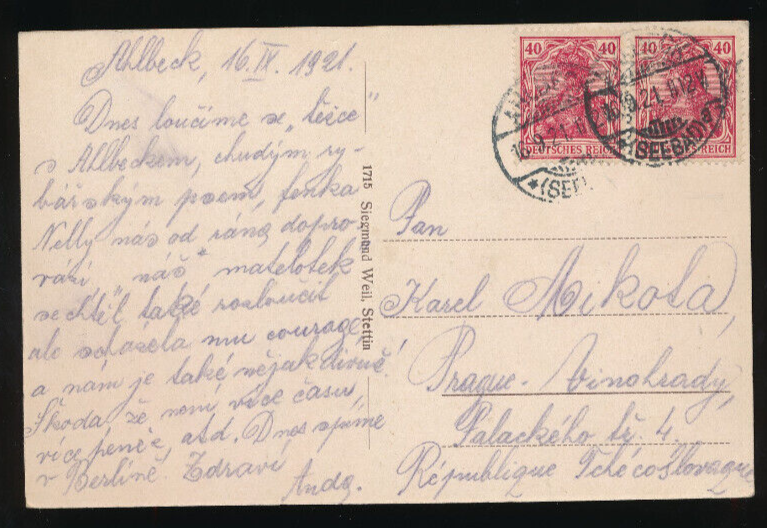 Ahlbeck, 16. IX. 1921.
Dnes loučíme se „těžce"
s Ahlbeckem, chudým ry-
bářským psem, fenka
Nelly nás od rána dopro-
vází „náš" matelotek
se chtěl také rozloučit
ale scházela mu courage
a nám je také nějak divně!
Škoda, že není více času,
více peněz, atd. Dnes spíme
v Berlíně. Zdraví
Anda.
1715 Siegmund Weil, Stettin
40 40
DEUTSCHES REICH
40 40
REICH
16.9.21
(SEE
9.21
(SEEBAD)
Pan
Karel Mikota,
Prague - Vinohrady,
Palackého tř. 4
République Tchécoslovaque